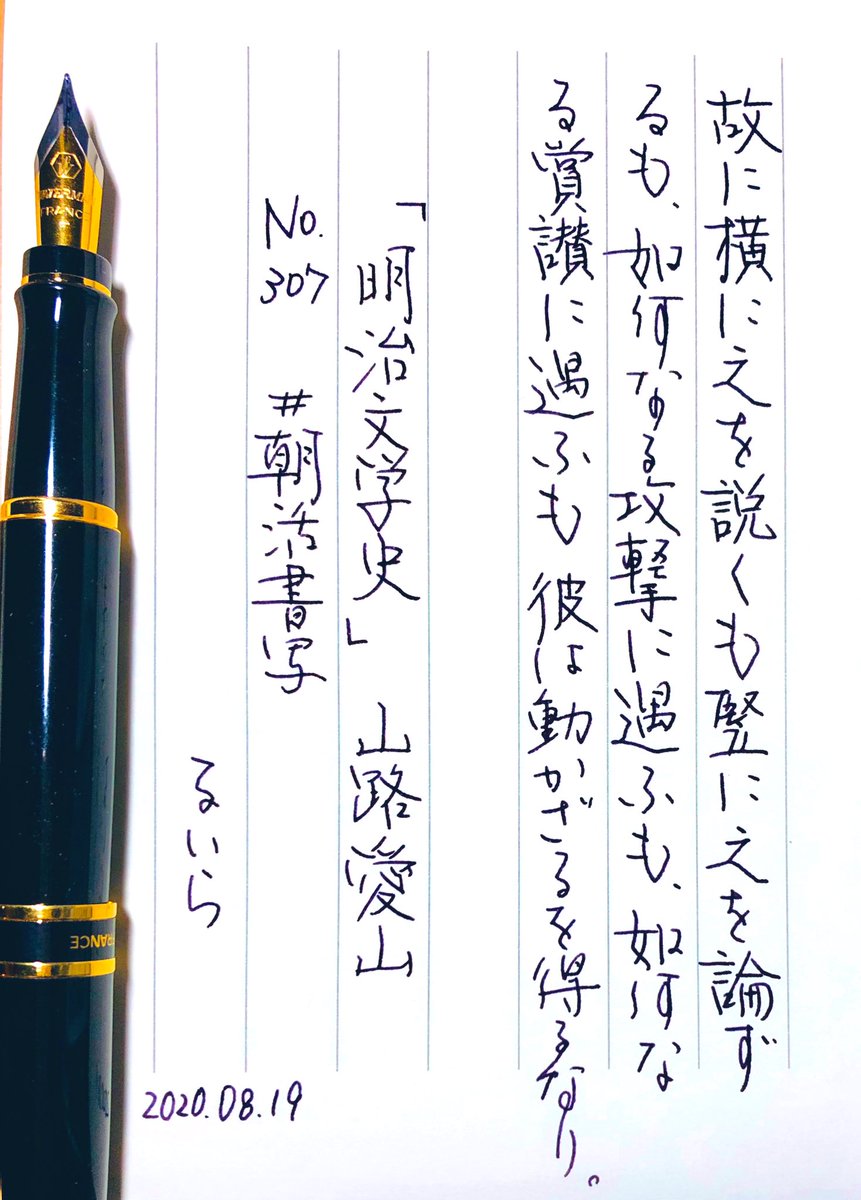 故に横に之を説くも竪に之を論ず
るも、如何なる攻撃に遇ふも、如何な
る賞讃に遇ふも彼は動かざるを得るなり。
「明治文学史」 山路愛山
No.307 #朝活書写
るいら
2020.08.19
FRANCE
FRANCE